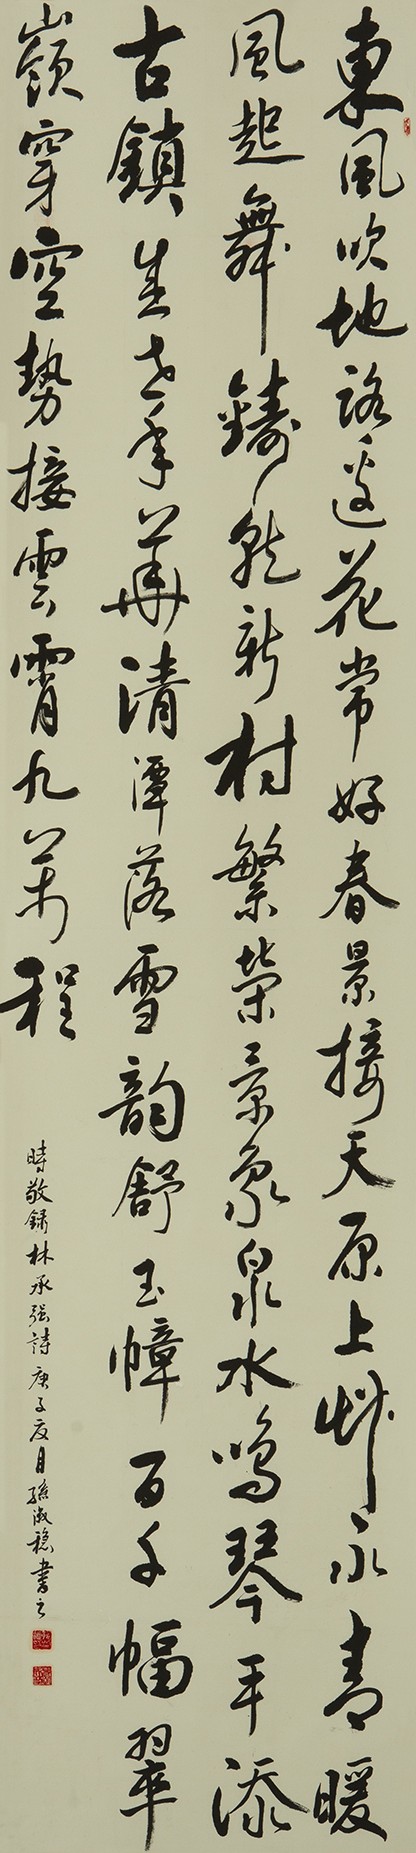 東風吹地路邊花常好春景接天原上艸永青暖
風起舞鑄就新村繁榮景象泉水鳴琴平添
古鎮生世年華清潭落雪韵舒玉幛百千幅翠
嶺穿空勢接雲霄九萬程
時敬録林承強詩庚子夏月孫淑穩書之